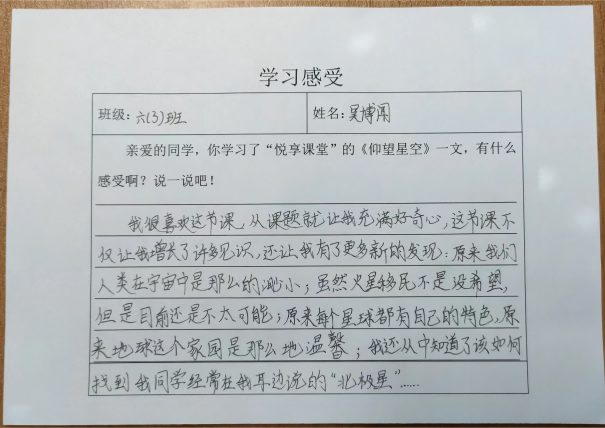 学习感受
班级：六(3)班 姓名：吴博闻
亲爱的同学，你学习了“悦享课堂”的《仰望星空》一文，有什么
感受啊？说一说吧！
我很喜欢这节课，从课题就让我充满好奇心，这节课不
仅让我增长了许多见识，还让我有了更多新的发现：原来我们
人类在宇宙中是那么的渺小；虽然火星移民不是没希望，
但是目前还是不太可能；原来每个星球都有自己的特色，原
来地球这个家园是那么地温馨；我还从中知道了该如何
找到我同学经常在我耳边说的“北极星”……